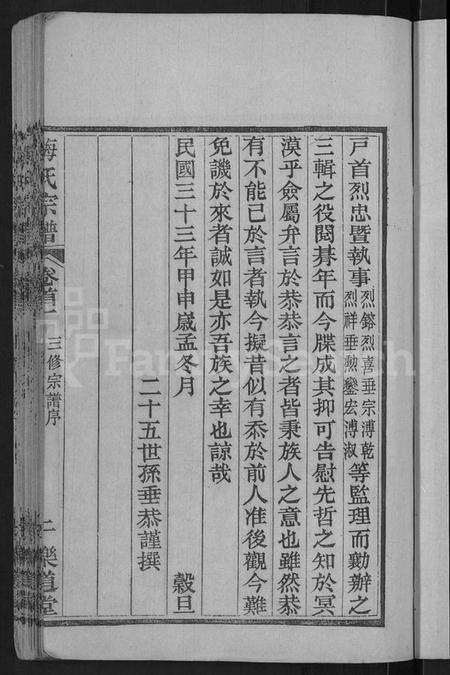 戸首烈忠暨執事烈鎔烈喜垂宗溥乾烈祥垂勲鑾宏溥淑等監理而勷辦之
三輯之役閱朞年而今牒成其抑可告慰先哲之知於冥
漠乎僉屬弁言於恭恭言之者皆秉族人之意也雖然恭
有不能已於言者執今擬昔似有忝於前人准後觀今難
免譏於來者誠如是亦吾族之幸也諒哉
民國三十三年甲申嵗孟冬月 穀旦
二十五世孫垂恭謹撰
梅氏宗譜 卷首一 三修宗譜序 二 樂道堂
FamilySearch